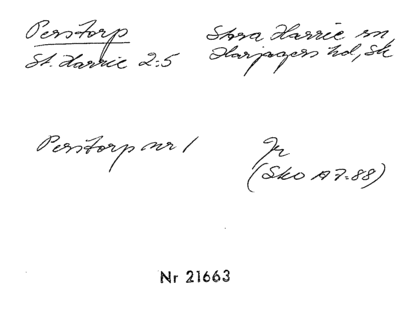 Perstorp
St. Harrie 2:5
Stora Harrie sn
Harjagers hd, Sk
Perstorp nr 1
Jr
(Sko A7:88)
Nr 21663